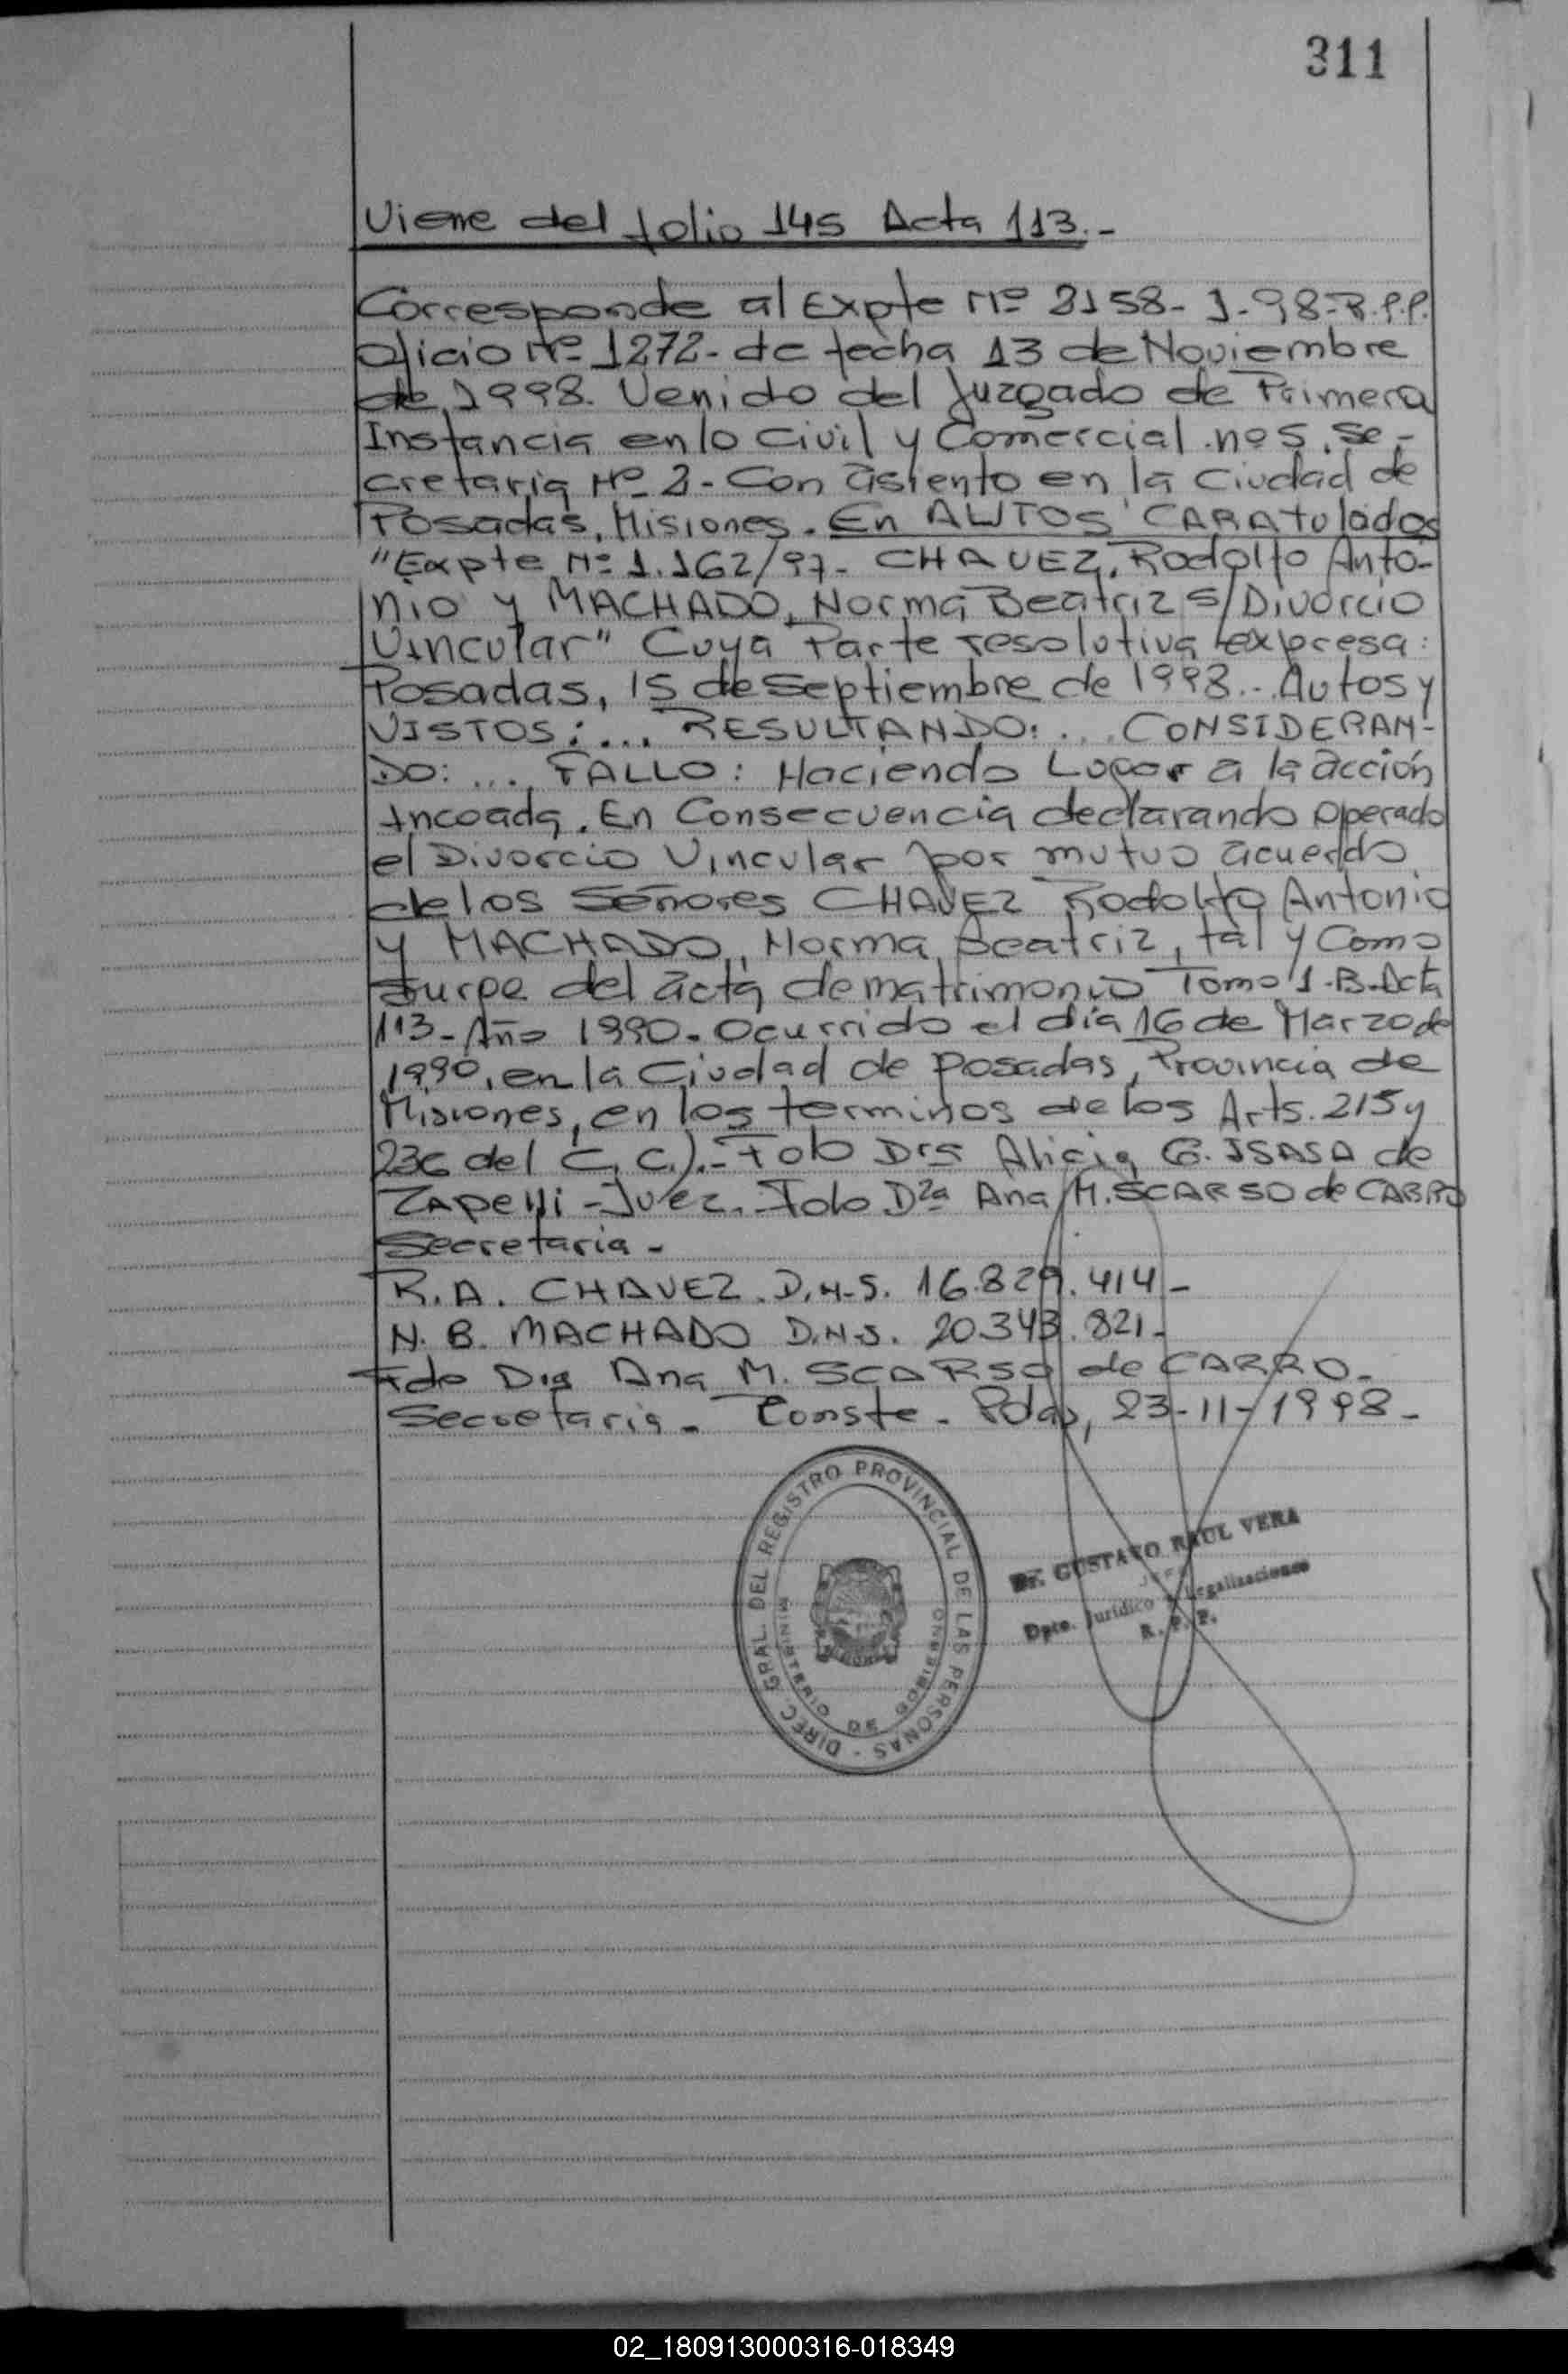 311
Viene del folio 145 Acta 113.-
Corresponde al Expte Nº 2158-1-98-R.P.P.
Oficio Nº 1272- de fecha 13 de Noviembre
de 1998. Venido del Juzgado de Primera
Instancia en lo Civil y Comercial nº 5, Se-
cretaria Nº 2- Con asiento en la Ciudad de
Posadas, Misiones. En AUTOS CARAtulados
"Expte Nº 1.162/97- CHAVEZ, Rodolfo Anto-
nio y MACHADO, Norma Beatriz S/Divorcio
Vincular" Cuya Parte resolutiva expresa:
Posadas, 15 de Septiembre de 1998.- Autos y
VISTOS: ... RESULTANDO: ... CONSIDERAN-
DO: ... FALLO: Haciendo Lugar a la acción
Incoada. En Consecuencia declarando operado
el Divorcio Vincular por mutuo acuerdo
de los Señores CHAVEZ Rodolfo Antonio
y MACHADO, Norma Beatriz, tal y Como
surge del acta de matrimonio Tomo 1-B-Acta
113-Año 1990. Ocurrido el día 16 de Marzo de
1990, en la Ciudad de Posadas, Provincia de
Misiones, en los terminos de los Arts. 215 y
236 del C.C.).- Fdo Dra Alicia G. ISASA de
ZAPelli - Juez.- Fdo Dra Ana M. SCARSO de CARRO
Secretaria -
R.A. CHAVEZ. D.N.I. 16.829.414-
N.B. MACHADO D.N.I. 20.343.821-
Fdo Dra Ana M. SCARSO de CARRO.
Secretaria - Conste. Pdas, 23-11-1998-
DIREC. GRAL. DEL REGISTRO PROVINCIAL DE LAS PERSONAS -
MINISTERIO DE GOBIERNO
Dr. GUSTAVO RAUL VERA
JEFE
Dpto. Jurídico y Legalizaciones
R. P. P.
02_180913000316-018349